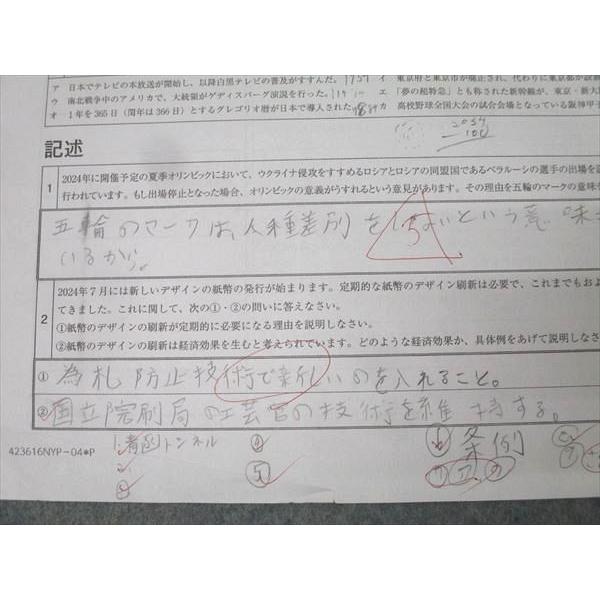 ア 日本でテレビの本放送が開始し、以降白黒テレビの普及がすすんだ。 イ
ウ 南北戦争中のアメリカで、大統領がゲティスバーグ演説を行った。 エ 「夢の超特急」とも称された新幹線が、東京・新大
オ 1年を365日（閏年は366日）とするグレゴリオ暦が日本で導入された。 カ 高校野球全国大会の試合会場となっている阪神甲子
記述
1 2024年に開催予定の夏季オリンピックにおいて、ウクライナ侵攻をすすめるロシアとロシアの同盟国であるベラルーシの選手の出場を認
行われています。もし出場停止となった場合、オリンピックの意義がうすれるという意見があります。その理由を五輪のマークの意味を
五輪のマークは、人種差別を しないという意味を
いるから。
2 2024年7月には新しいデザインの紙幣の発行が始まります。定期的な紙幣のデザイン刷新は必要で、これまでもおよ
てきました。これに関して、次の①・②の問いに答えなさい。
①紙幣のデザインの刷新が定期的に必要になる理由を説明しなさい。
②紙幣のデザインの刷新は経済効果を生むと考えられています。どのような経済効果か、具体例をあげて説明しなさ
① 為札防止技術で新しいのを入れること。
② 国立院刷局の工芸官の技術を維持する。
1.青函トンネル ④ ① 条例
⑤
423616NYP−04*P